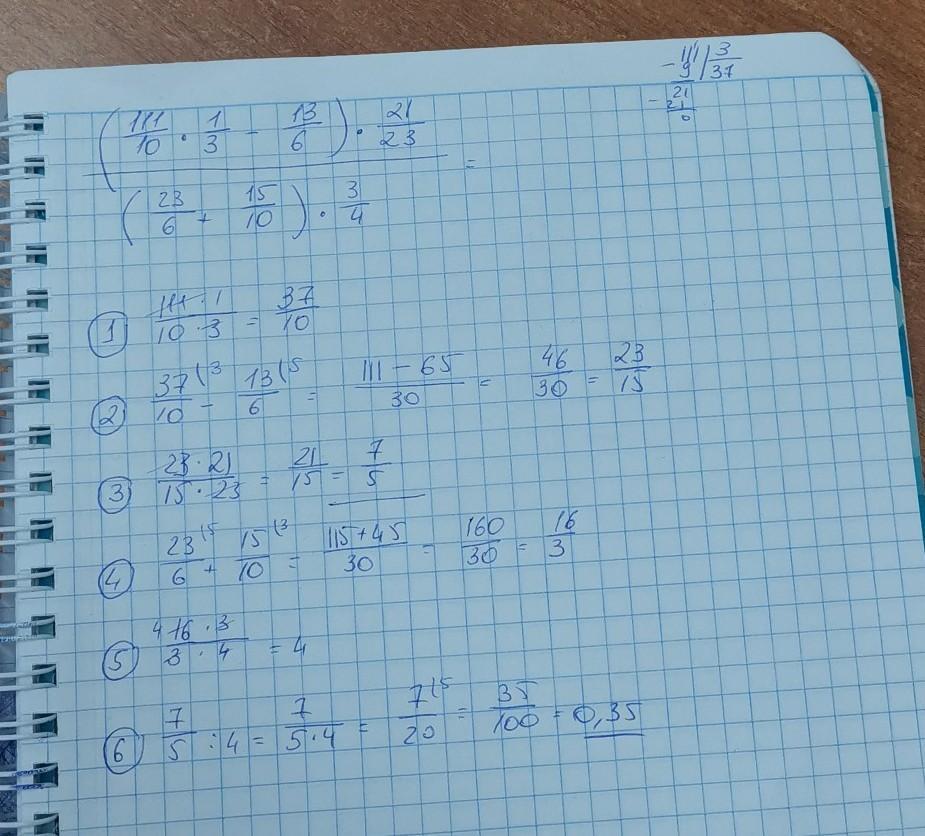 111 | 3
- 9 | 37
21
- 21
0
(111/10 · 1/3 - 13/6) · 21/23
=
(23/6 + 15/10) · 3/4
① 111·1/10·3 = 37/10
② 37/10 (3 - 13/6 (5 = 111-65/30 = 46/30 = 23/15
③ 23·21/15·23 = 21/15 = 7/5
④ 23/6 (5 + 15/10 (3 = 115+45/30 = 160/30 = 16/3
⑤ 4 16·3/3·4 = 4
⑥ 7/5 : 4 = 7/5·4 = 7/20 (5 = 35/100 = 0,35